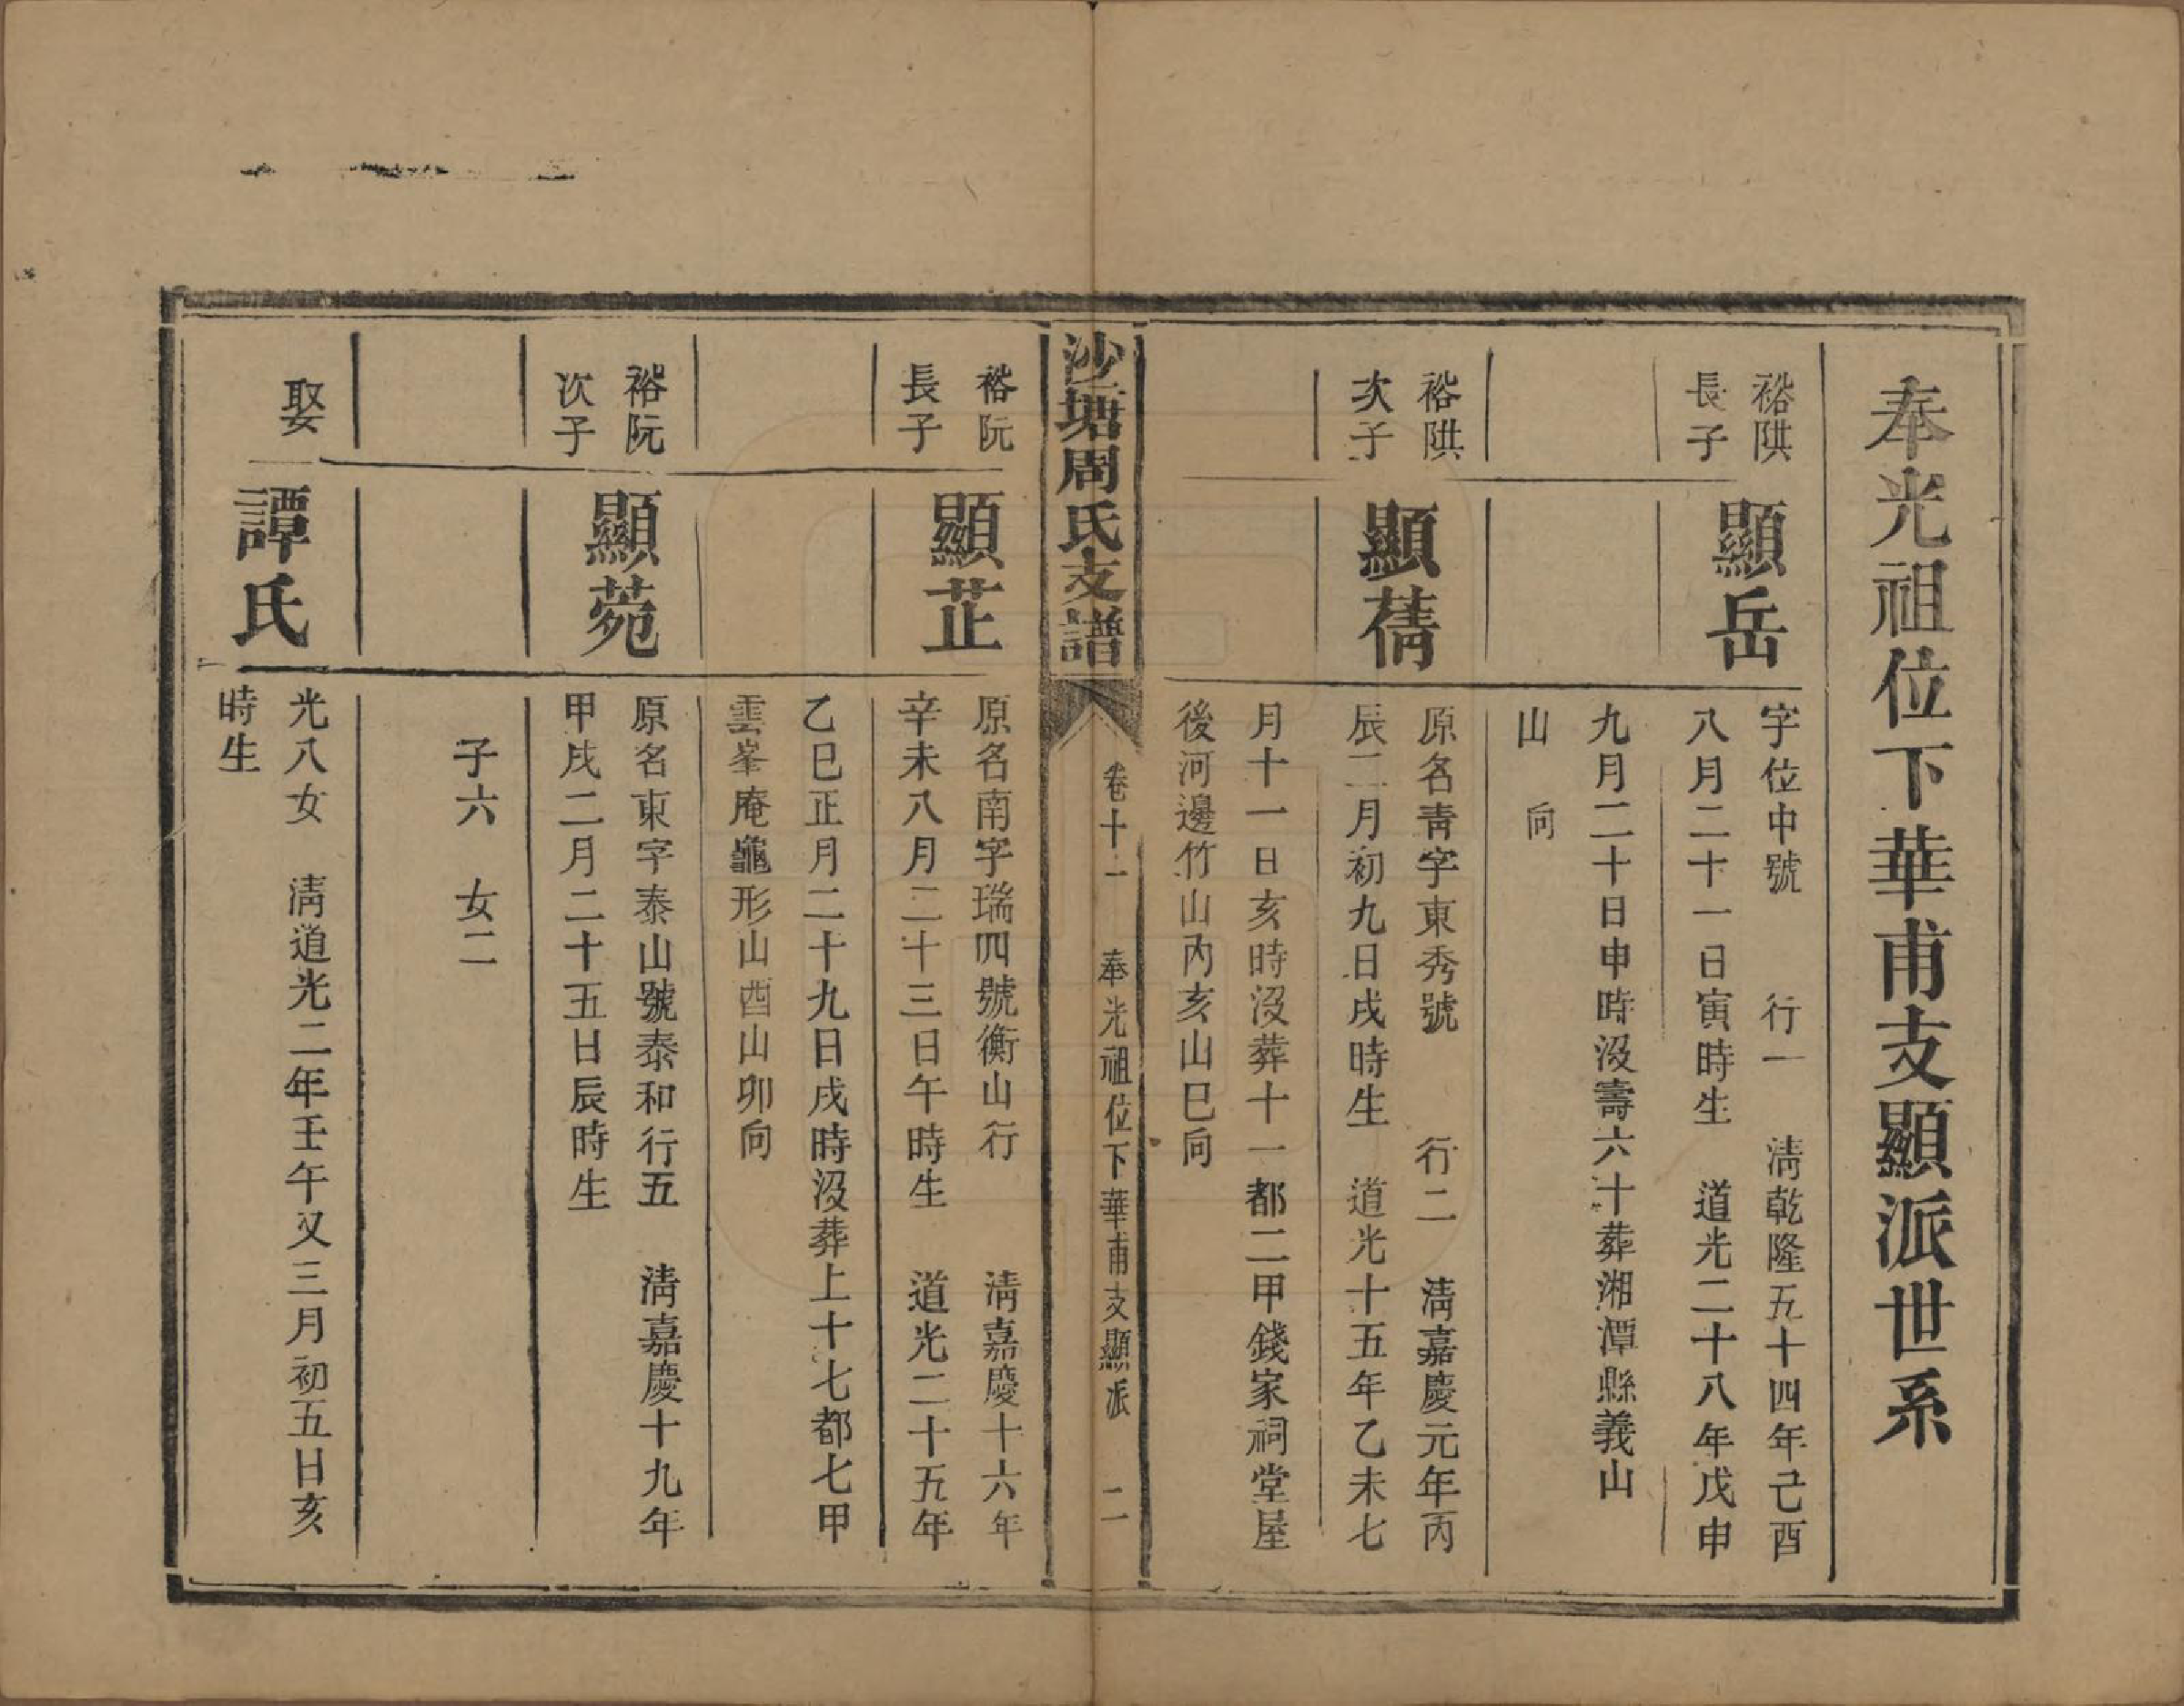 奉光祖位下華甫支顯派世系
裕𨹧
長子
顯岳
字位中號　行一　淸乾隆五十四年己酉
八月二十一日寅時生　道光二十八年戊申
九月二十日申時沒壽六十葬湘潭縣義山
山　向
裕𨹧
次子
顯蒨
原名靑字東秀號　行二　淸嘉慶元年丙
辰二月初九日戌時生　道光十五年乙未七
月十一日亥時沒葬十一都二甲錢家祠堂屋
後河邊竹山內亥山巳向
沙塘周氏支譜
卷十一　奉光祖位下華甫支顯派　二
裕阮
長子
顯芷
原名南字瑞四號衡山行　淸嘉慶十六年
辛未八月二十三日午時生　道光二十五年
乙巳正月二十九日戌時沒葬上十七都七甲
雲峯庵龜形山酉山卯向
裕阮
次子
顯菀
原名東字泰山號泰和行五　淸嘉慶十九年
甲戌二月二十五日辰時生
子六　女二
娶
譚氏
光八女　淸道光二年壬午又三月初五日亥
時生